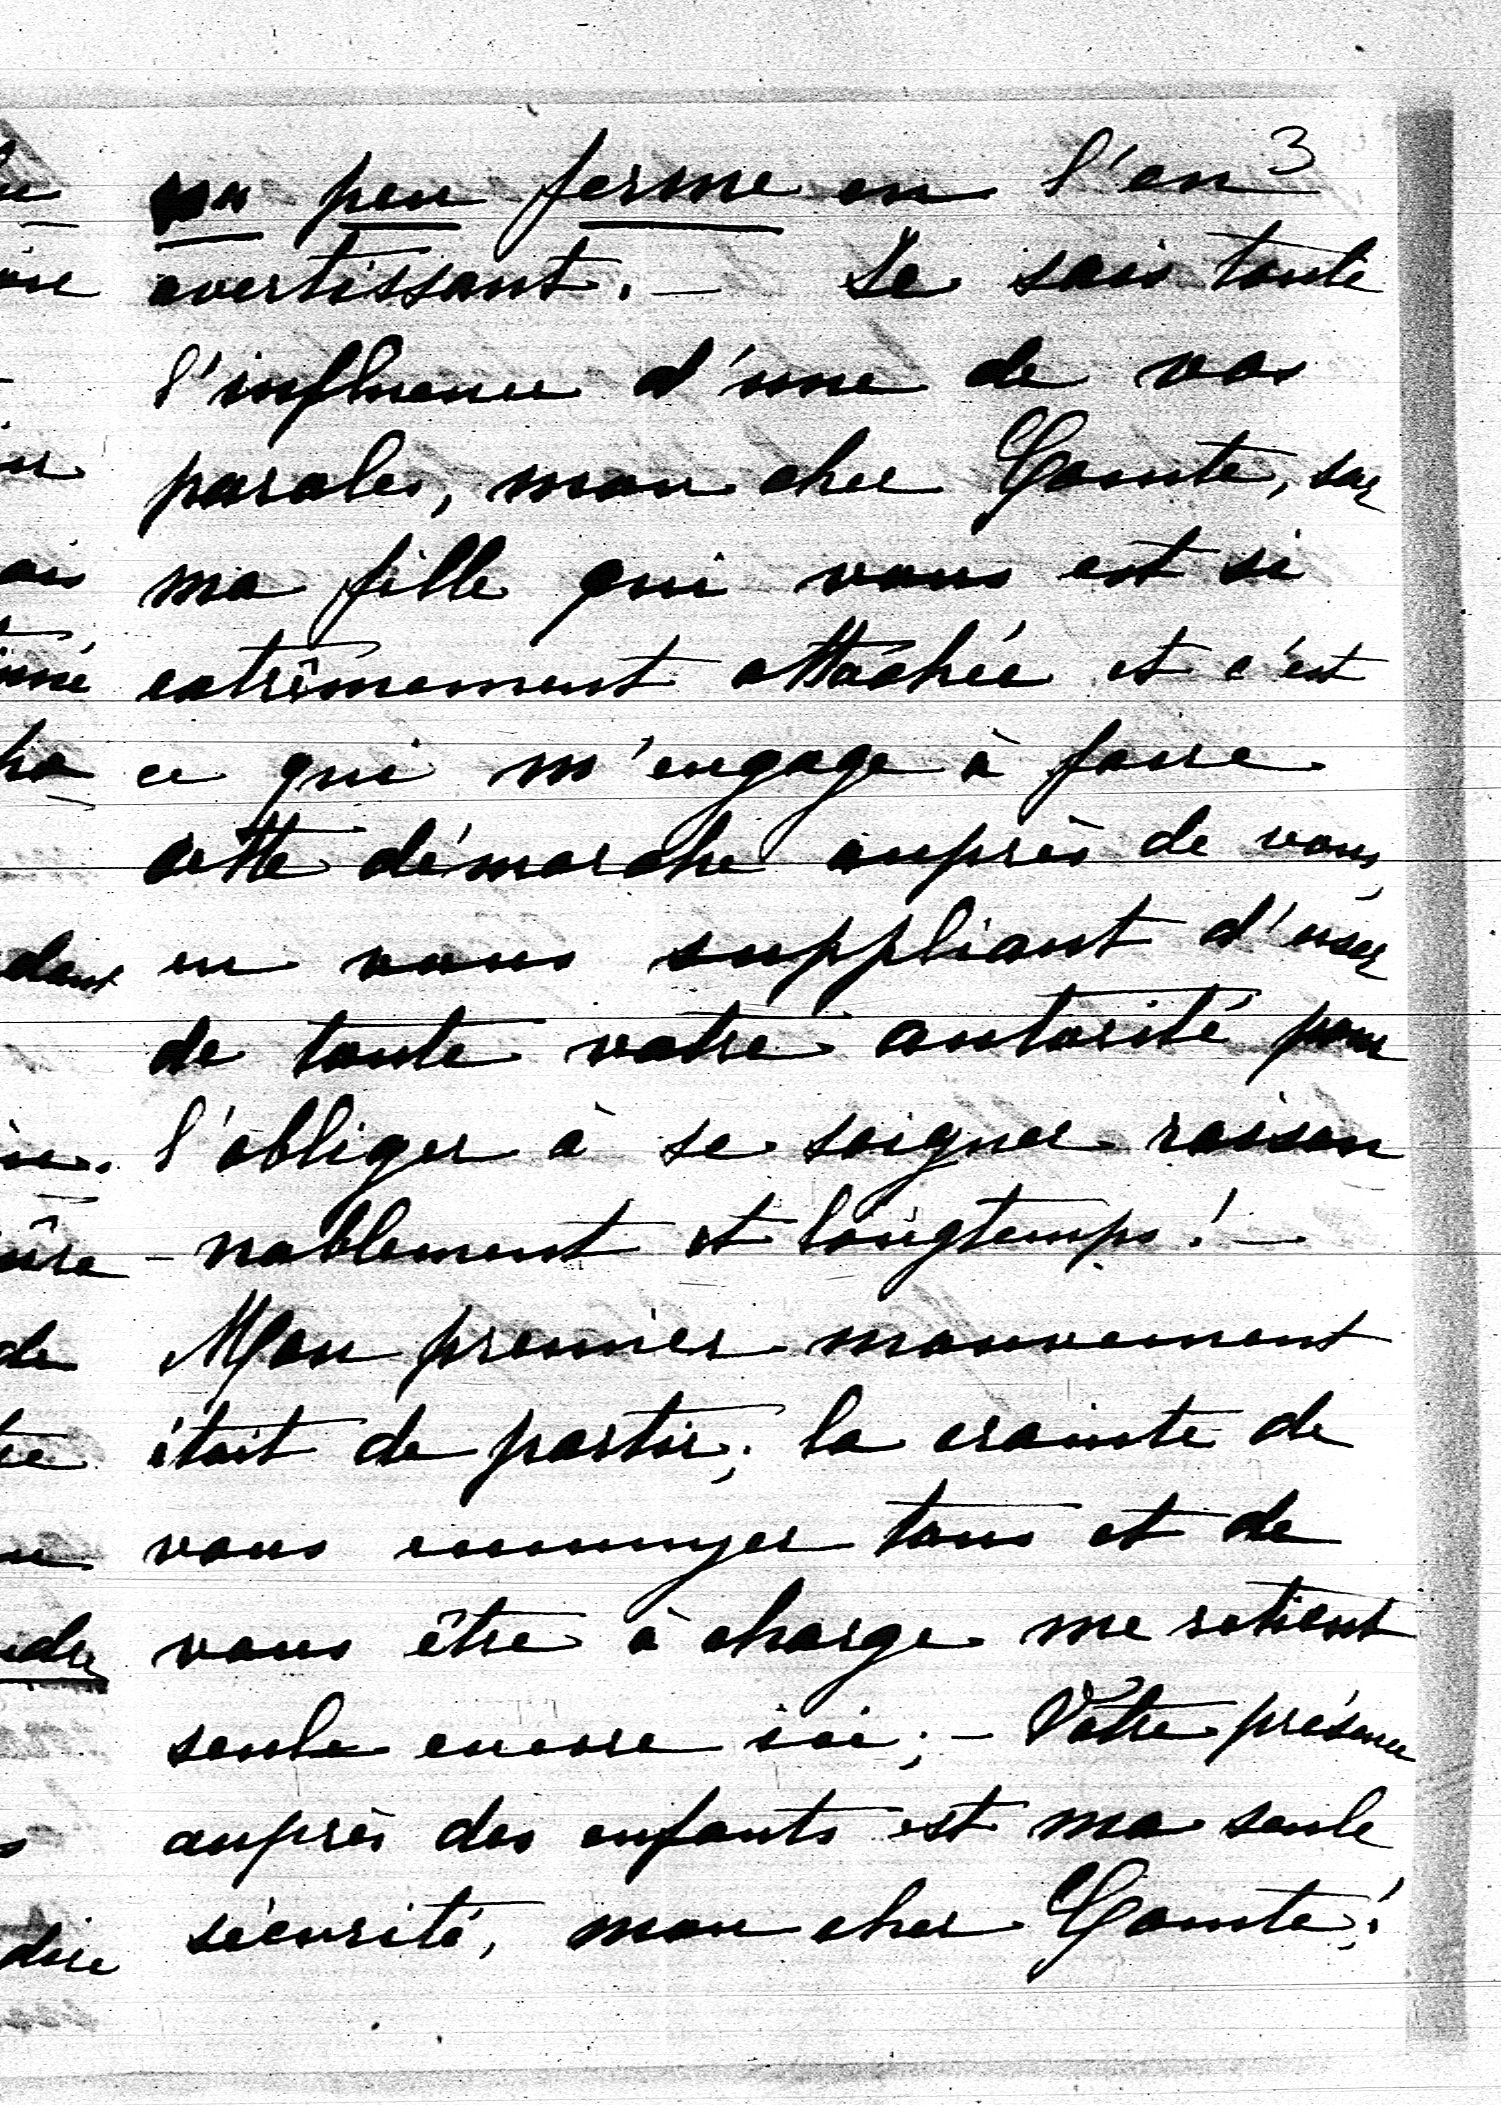 3
un peu ferme en l'en
avertissant. — Je sais toute
l'influence d'une de vos
paroles, mon cher Comte, sur
ma fille qui vous est si
extrêmement attachée et c'est
ce qui m'engage à faire
cette démarche auprès de vous,
en vous suppliant d'user
de toute votre autorité pour
l'obliger à se soigner raison
- nablement et longtemps ! —
Mon premier mouvement
était de partir ; la crainte de
vous ennuyer tous et de
vous être à charge me retient
seule encore ici ; — Votre présence
auprès des enfants est ma seule
sécurité, mon cher Comte !